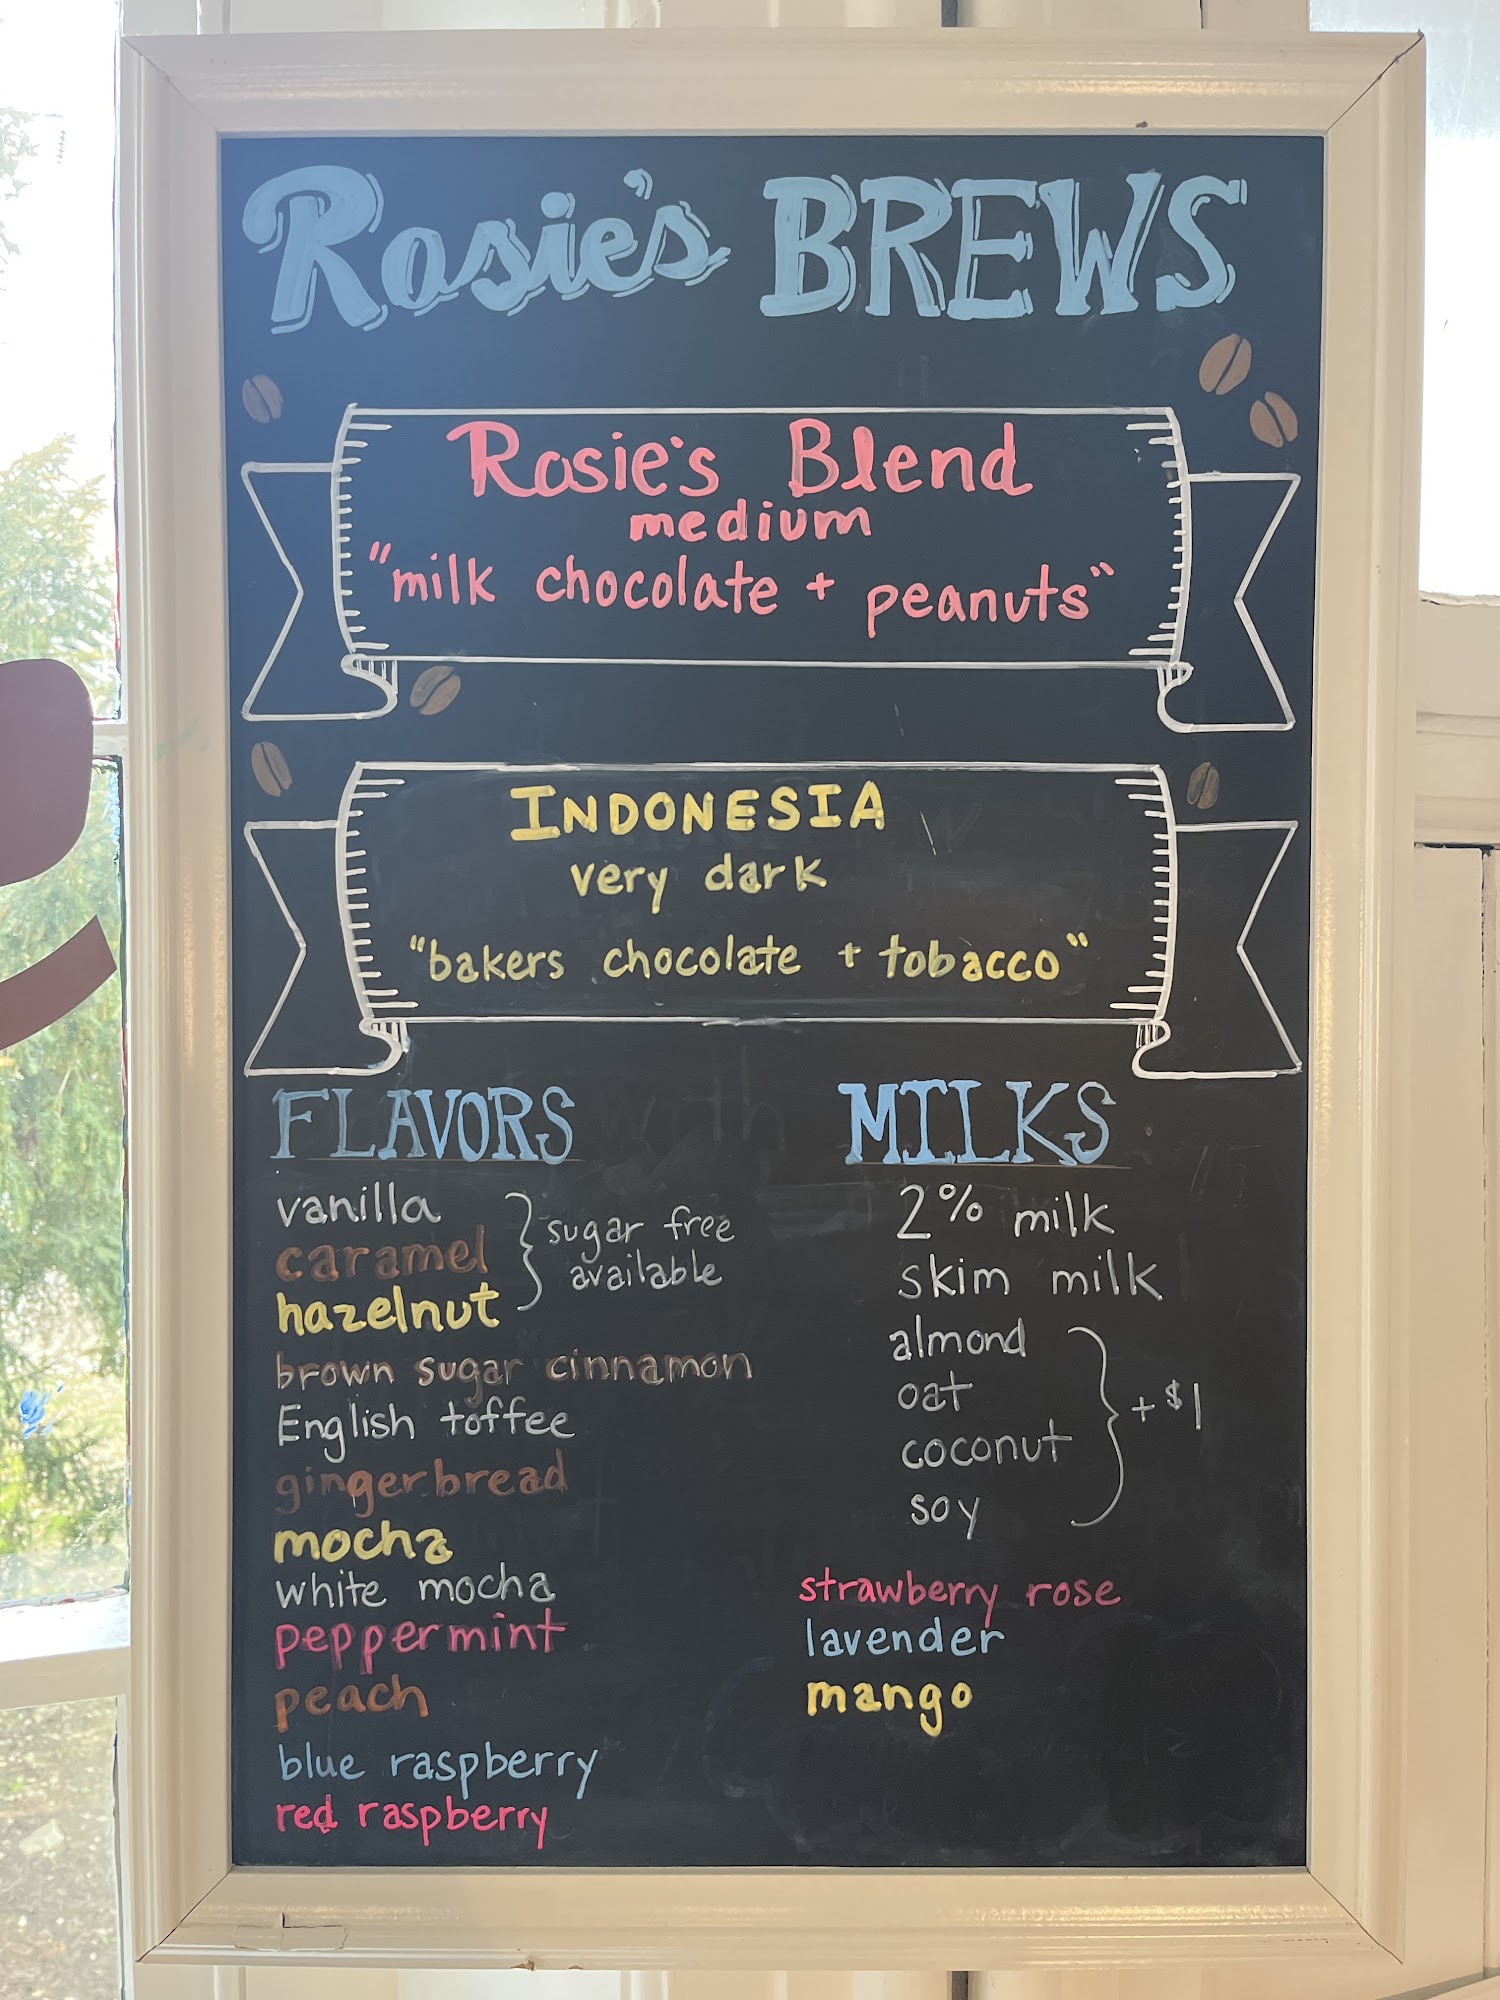 Rosie's BREWS
Rosie's Blend
medium
"milk chocolate + peanuts"
INDONESIA
very dark
"bakers chocolate + tobacco"
FLAVORS
vanilla
caramel
hazelnut
sugar free
available
brown sugar cinnamon
English toffee
gingerbread
mocha
white mocha
peppermint
peach
blue raspberry
red raspberry
MILKS
2% milk
skim milk
almond
oat
coconut
soy
+ $1
strawberry rose
lavender
mango